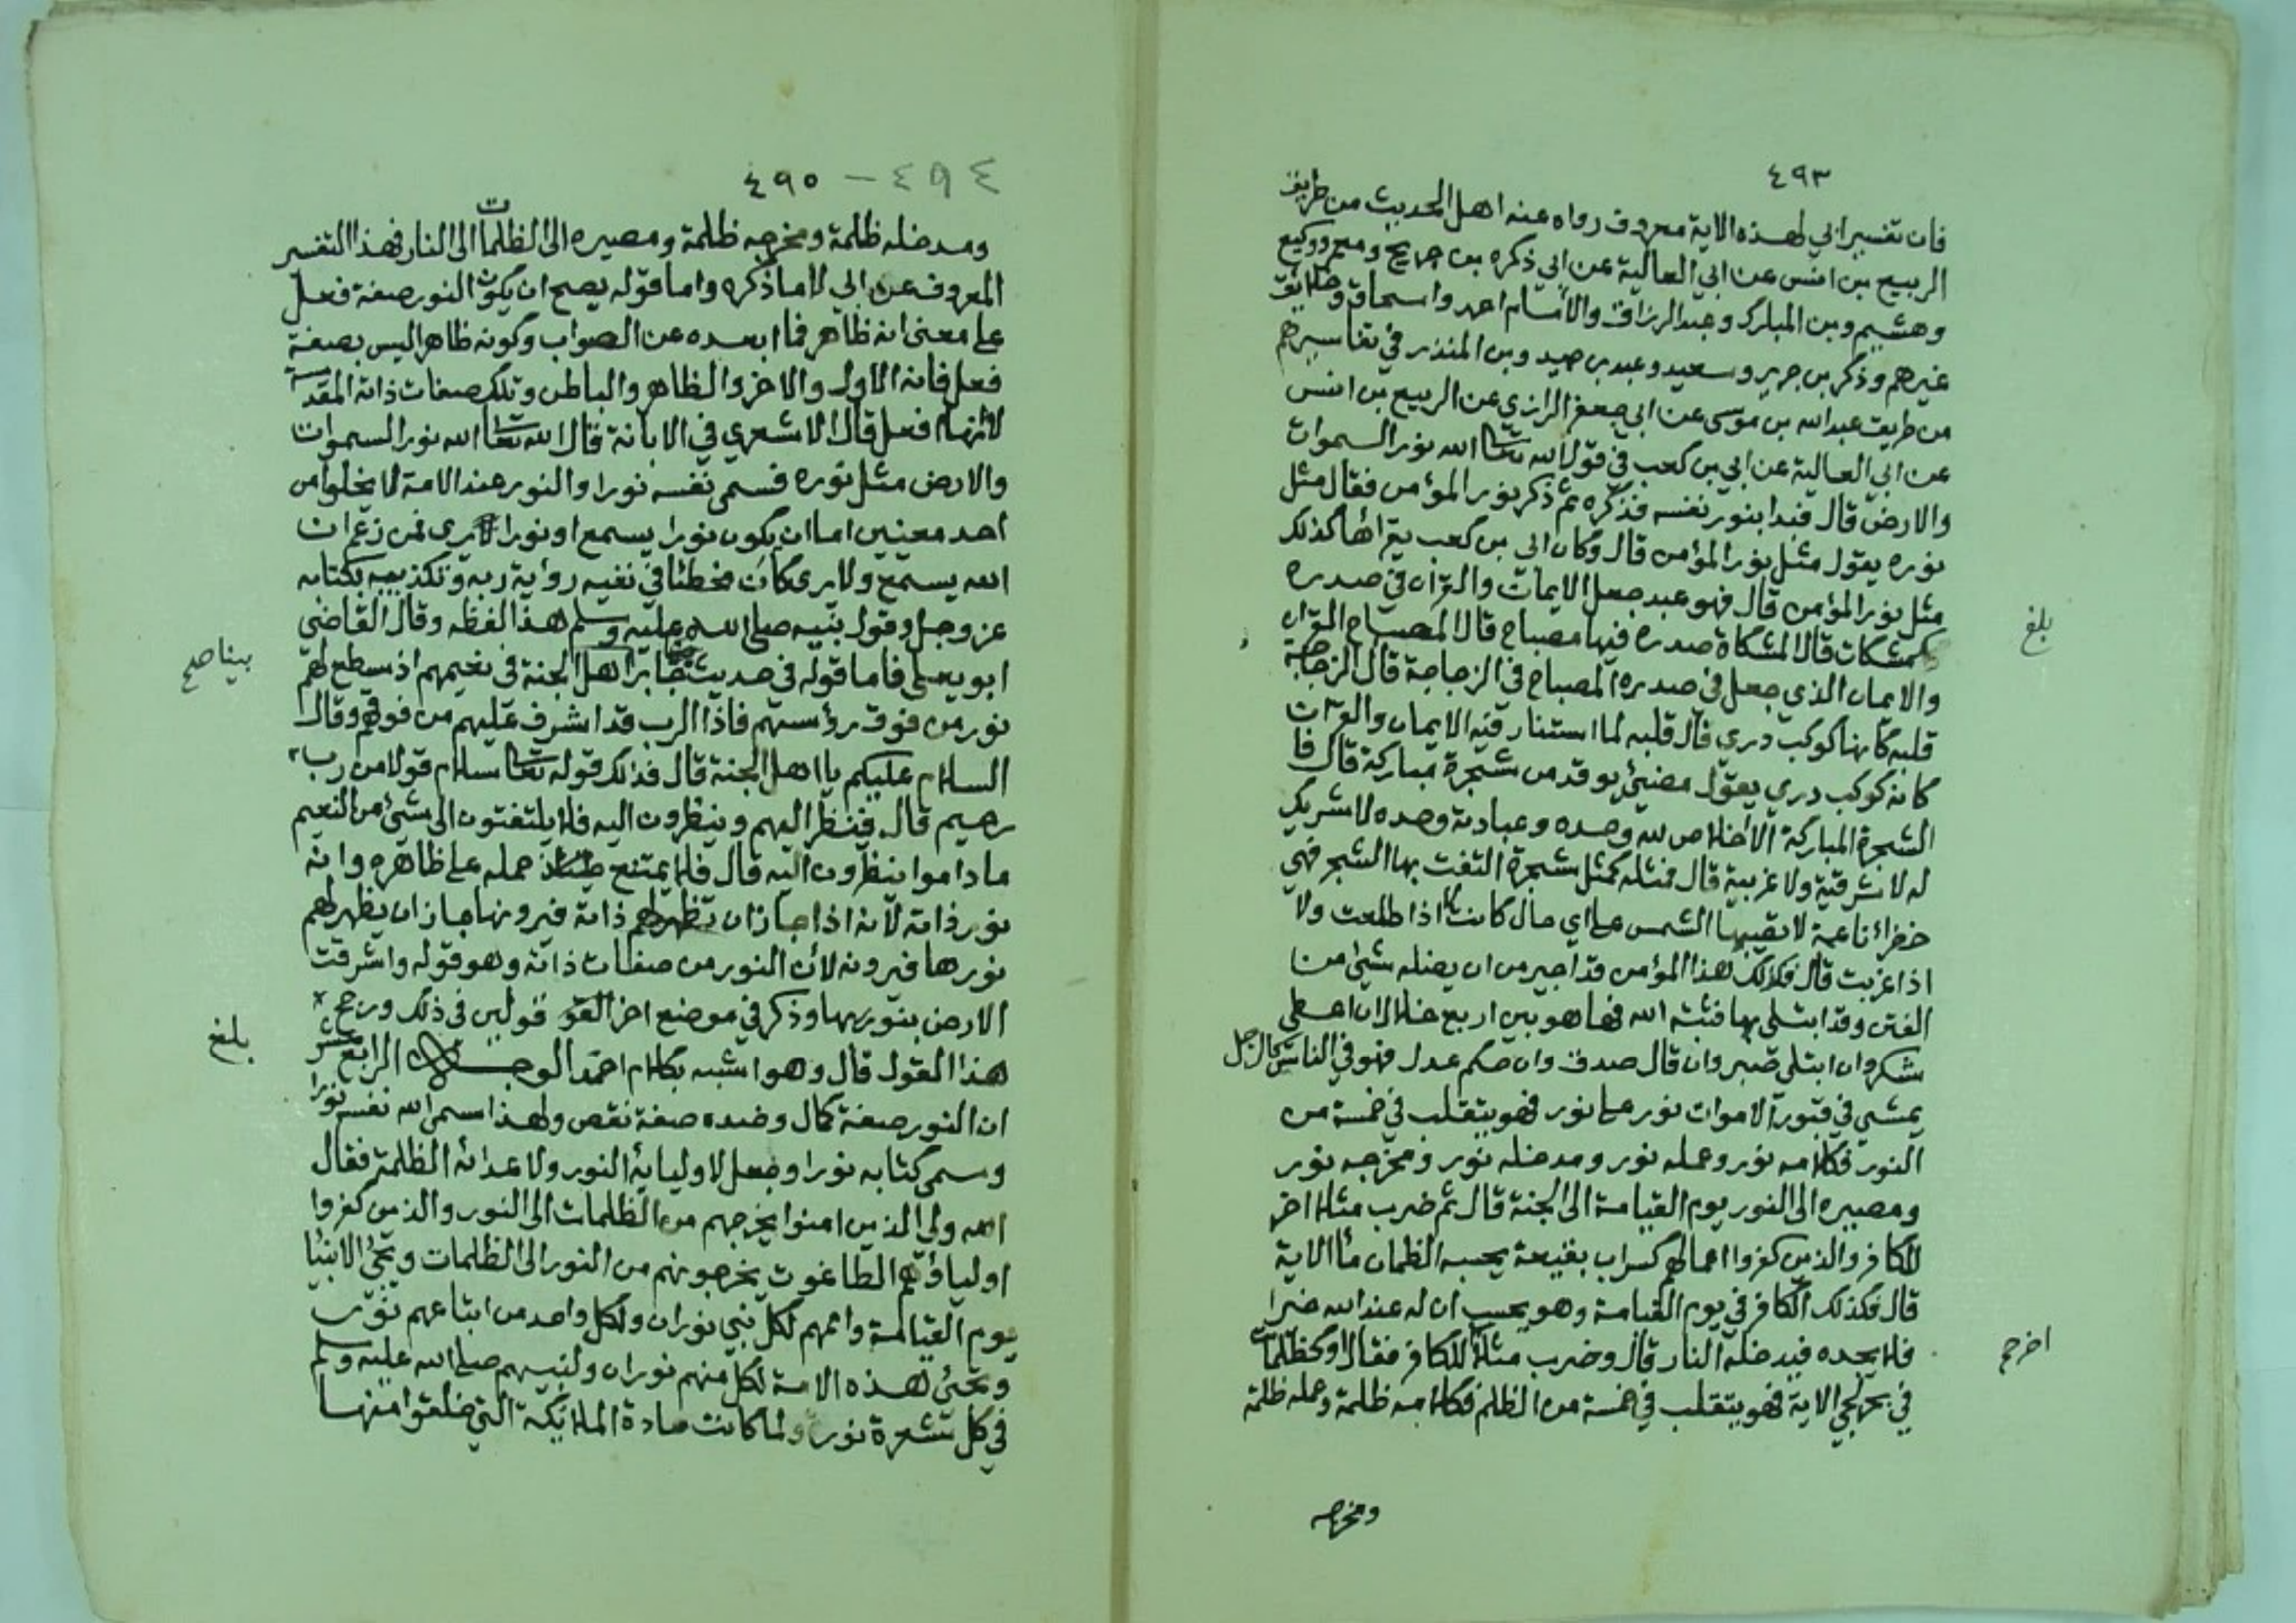 ٤٩٣
فان تفسير ابي لهذه الاية معروف رواه عنه اهل الحديث من طريق
الربيع بن انس عن ابي العالية عن ابي ذكره بن جريج ومعمر ووكيع
وهشيم وبن المبارك وعبد الرزاق والامام احمد واسحاق وخلايق
غيرهم وذكر بن جرير وسعيد وعبد بن حميد وبن المنذر في تفاسيرهم
من طريق عبد الله بن موسى عن ابي جعفر الرازي عن الربيع بن انس
عن ابي العالية عن ابي بن كعب في قول الله تعا الله نور السموات
والارض قال فبدا بنور نفسه فذكره ثم ذكر نور المؤمن فقال مثل
نوره يقول مثل نور المؤمن قال وكان ابي بن كعب يقرأها كذلك
مثل نور المؤمن قال فهو عبد جعل الايمان والقران في صدره
كمشكات قال المشكاة صدره فيها مصباح قال المصباح القران
والايمان الذي جعل في صدره المصباح في الزجاجة قال الزجاجة
قلبه كانها كوكب دري قال قلبه لما استنار فيه الايمان والقران
كانه كوكب دري يقول مضيئ يوقد من شجرة مباركة قال فا
الشجرة المباركة الاخلاص لله وحده وعبادته وحده لا شريك
له لا شرقية ولا غربية قال فمثله كمثل شجرة التفت بها الشجر فهي
خضراء ناعمة لا تصيبها الشمس على اي حال كانت لا اذا طلعت ولا
اذا غربت قال فكذلك هذا المؤمن قد اجير من ان يضله شيئ من
الفتن وقد ابتلي بها فثبته الله فيها هو بين اربع خلال ان اعطي
شكر وان ابتلي صبر وان قال صدق وان حكم عدل فهو في الناس كالرجل
يمشي في قبور الاموات نور على نور فهو يتقلب في خمسة من
النور فكلامه نور وعمله نور ومدخله نور ومخرجه نور
ومصيره الى النور يوم القيامة الى الجنة قال ثم ضرب مثلا اخر
للكافر والذين كفروا اعمالهم كسراب بقيعة يحسبه الظمان مأ الاية
قال فكذلك الكافر في يوم القيامة وهو يحسب ان له عند الله خيرا
فلا يجده فيدخله النار قال وضرب مثلا للكافر فقال او كظلمات
في بحر لجي الاية فهو يتقلب في خمسة من الظلم فكلامه ظلمة وعمله ظلمة
ومخرجه
بلغ
اخرج
٤٩٤ – ٤٩٠
ومدخله ظلمة ومخرجه ظلمة ومصيره الى الظلمات الى النار فهذا التفسير
المعروف عن ابي لا ما ذكره واما قوله يصح ان يكون النور صفة فعل
على معنى انه ظاهر فما ابعده عن الصواب وكونه ظاهرا ليس بصفة
فعل فانه الاول والاخر والظاهر والباطن وتلك صفات ذاته المقدسة
لا انها فعل قال الاشعري في الابانة قال الله تعا الله نور السموات
والارض مثل نوره فسمى نفسه نورا والنور عند الامة لا يخلوا من
احد معنيين اما ان يكون نورا يسمع او نورا يرى فمن زعم ان
الله يسمع ولا يرى كان مخطئا في نفيه رؤية ربه وتكذيبه بكتابه
عز وجل وقول نبيه صلى الله عليه وسلم هذا لفظه وقال القاضي
ابو يعلى فاما قوله في حديث جابر اهل الجنة في نعيمهم اذ سطع لهم
نور من فوق رؤسهم فاذا الرب قد اشرف عليهم من فوقهم وقال
السلام عليكم يا اهل الجنة قال فذلك قوله تعا سلام قولا من رب
رحيم قال فينظر اليهم وينظرون اليه فلا يلتفتون الى شيئ من النعيم
ما داموا ينظرون اليه قال فلا يمتنع حمله على ظاهره وانه
نور ذاته لانه اذا جاز ان تظهر لهم ذاته فيرونها جاز ان يظهر لهم
نورها فيرونه لان النور من صفات ذاته وهو قوله واشرقت
الارض بنور ربها وذكر في موضع اخر القو قولين في ذلك ورجح
هذا القول قال وهو اشبه بكلام احمد الوجــه الرابع عشر
ان النور صفة كمال وضده صفة نقص ولهذا سمى الله نفسه نورا
وسمى كتابه نورا وجعل لاوليائه النور ولاعدائه الظلمة فقال
الله ولي الذين امنوا يخرجهم من الظلمات الى النور والذين كفروا
اولياؤهم الطاغوت يخرجونهم من النور الى الظلمات ويجئ الانبيا
يوم القيامة واممهم لكل نبي نوران ولكل واحد من اتباعهم نور
ويجئ هذه الامة لكل منهم نوران ولنبيهم صلى الله عليه وسلم
في كل شعرة نور ولما كانت مادة الملائكة التي خلقوا منها
بينا صح
بلغ